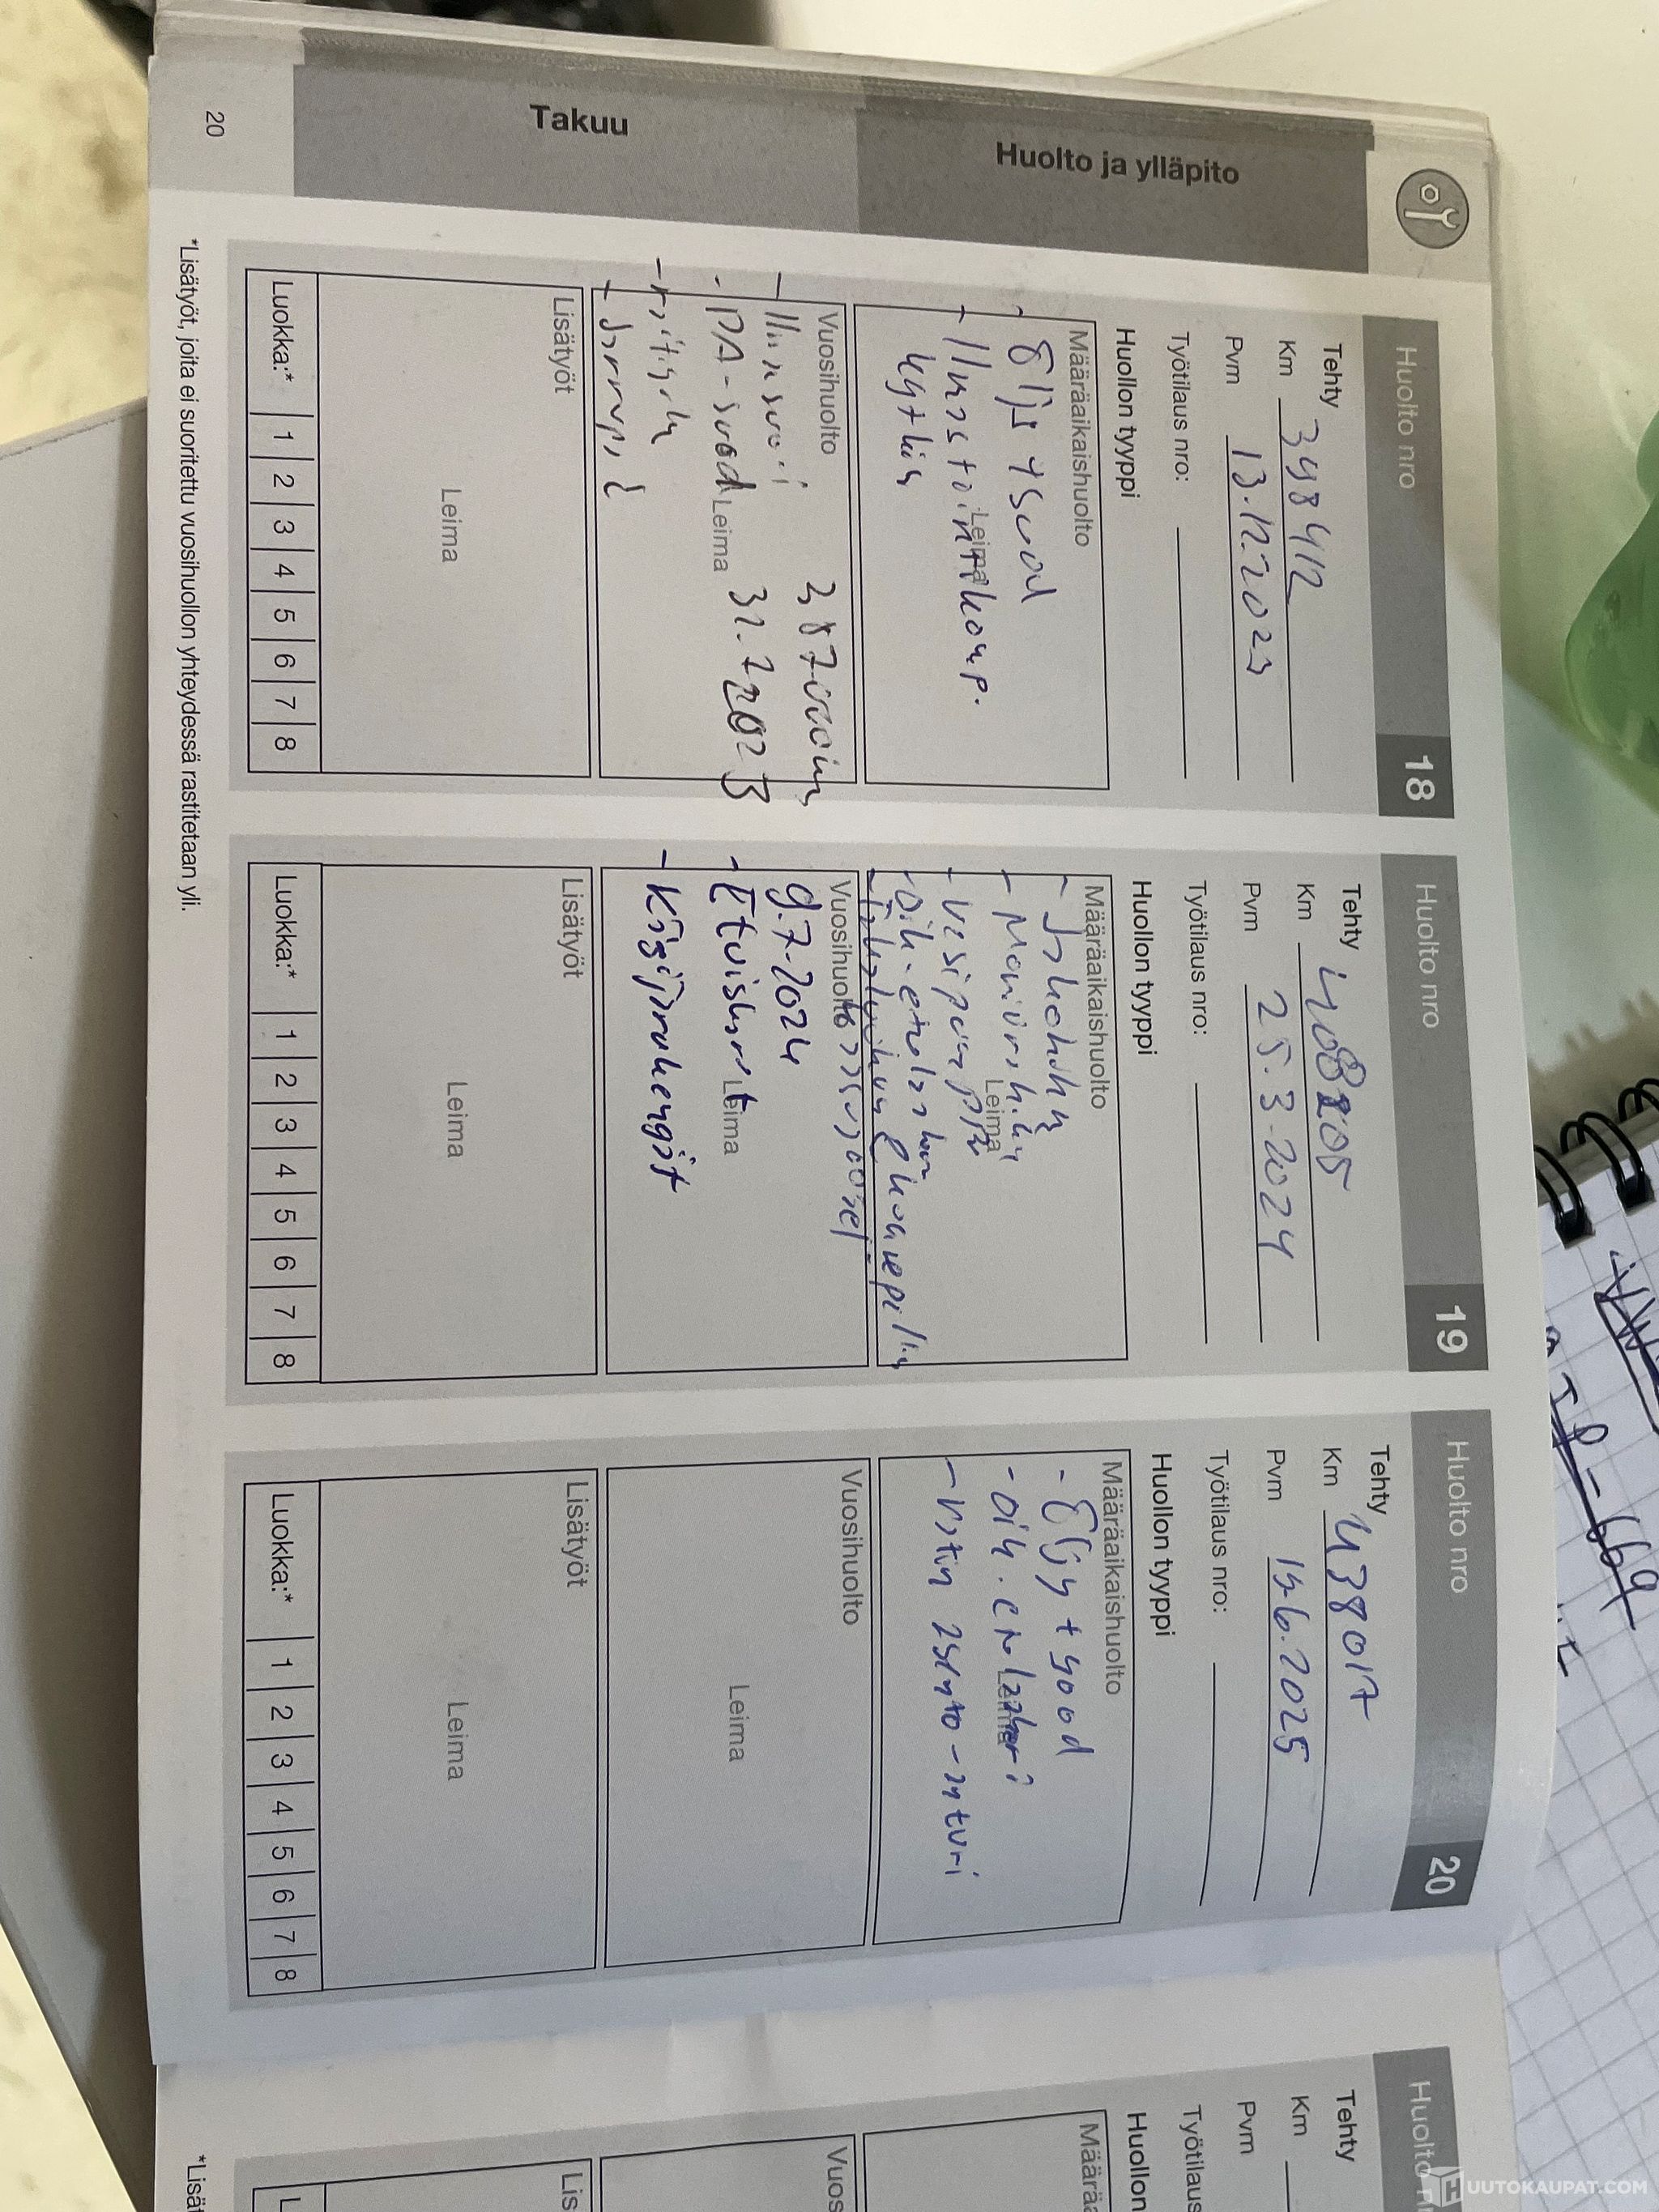 Huolto ja ylläpito
Takuu
20
Huolto nro 18
Tehty
Km 398412
Pvm 13.12.2023
Työtilaus nro:
Huollon tyyppi
Määräaikaishuolto
Leima
- Öljy + suod
- Ilmastoinnkomp.
kytkin
Vuosihuolto
387000km
- Ilmansuo
- PA-suod
Leima
31.7.2023
Lisätyöt
Leima
Luokka:* 1 2 3 4 5 6 7 8
Huolto nro 19
Tehty
Km
Pvm 25.3.2024
Työtilaus nro:
Huollon tyyppi
Määräaikaishuolto
- Jakohihna
- Moniurahihna
Leima
- Vesipumppu
- Oik. etulaakeri
Vuosihuolto
9.7.2024
- Etuiskarit
Leima
- Käsijarruhengät
Lisätyöt
Leima
Luokka:* 1 2 3 4 5 6 7 8
Huolto nro 20
Tehty
Km 438017
Pvm 15.6.2025
Työtilaus nro:
Huollon tyyppi
Määräaikaishuolto
- Öljy + suod
- Oik. etulaakeri
Leima
- Virran asento-anturi
Vuosihuolto
Leima
Lisätyöt
Leima
Luokka:* 1 2 3 4 5 6 7 8
*Lisätyöt, joita ei suoritettu vuosihuollon yhteydessä rastitetaan yli.
Huolto n
Tehty
Km
Pvm
Työtilaus
Huollon
Määräa
Vuos
Lis
L
*Lisät
UUTOKAUPAT.COM